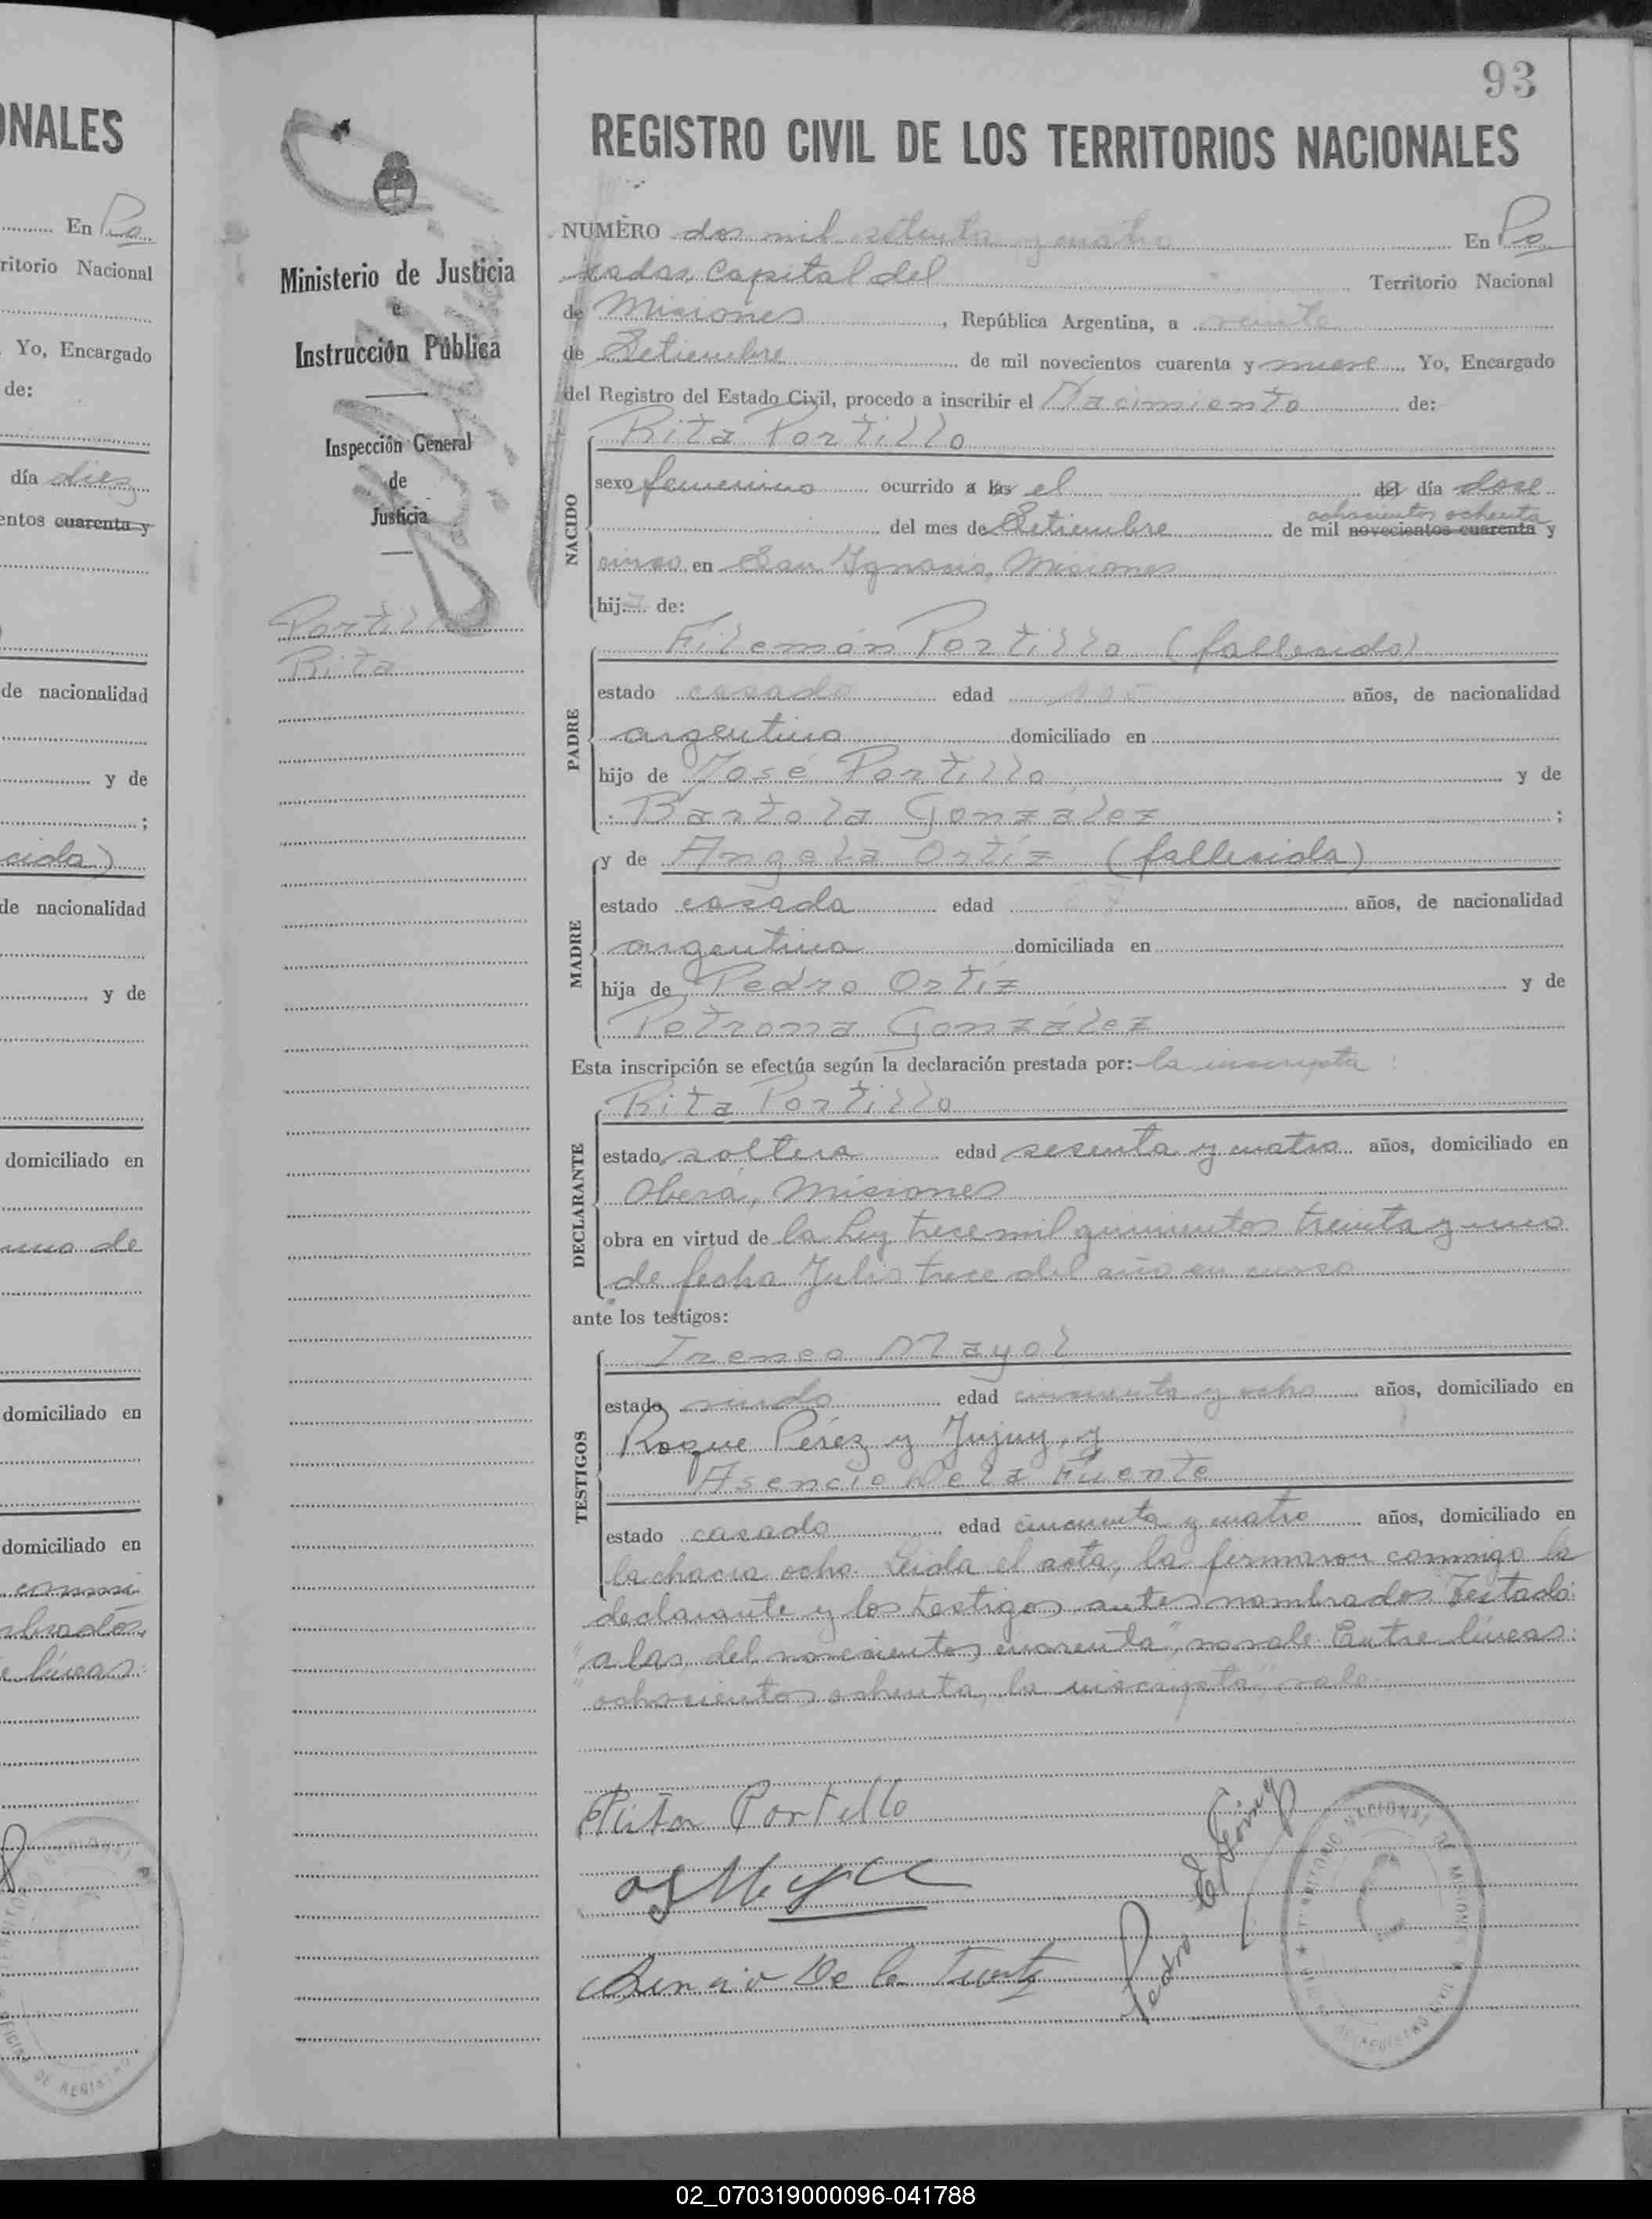 93
ONALES
En Po
ritorio Nacional
Yo, Encargado
de:
día diez
entos cuarenta y
de nacionalidad
y de
;
cida)
de nacionalidad
y de
domiciliado en
uno de
domiciliado en
domiciliado en
e líneas:
Ministerio de Justicia
e
Instrucción Pública
Inspección General
de
Justicia
Portillo
Rita
REGISTRO CIVIL DE LOS TERRITORIOS NACIONALES
NUMERO dos mil setenta y cuatro En Po
sadas, Capital del Territorio Nacional
de Misiones, República Argentina, a veinte
de Setiembre de mil novecientos cuarenta y nueve Yo, Encargado
del Registro del Estado Civil, procedo a inscribir el Nacimiento de:
Rita Portillo
NACIDO
sexo femenino ocurrido a las el del día doce
ochocientos ochenta
del mes de Setiembre de mil novecientos cuarenta y
cinco en San Ignacio, Misiones
hija de:
Filemón Portillo (fallecido)
PADRE
estado casado edad años, de nacionalidad
argentino domiciliado en
hijo de José Portillo y de
Bartola González ;
y de Angela Ortíz (fallecida)
MADRE
estado casada edad años, de nacionalidad
argentina domiciliada en
hija de Pedro Ortíz y de
Petrona González
Esta inscripción se efectúa según la declaración prestada por: la inscripta
Rita Portillo
DECLARANTE
estado soltera edad sesenta y cuatro años, domiciliado en
Oberá, Misiones
obra en virtud de la Ley trece mil quinientos treinta y uno
de fecha Julio trece del año en curso
ante los testigos:
Ireneo Mayol
TESTIGOS
estado viudo edad cincuenta y ocho años, domiciliado en
Roque Pérez y Jujuy, y
Asencio De la Fuente
estado casado edad cincuenta y cuatro años, domiciliado en
la chacra ocho. Leída el acta, la firmaron conmigo la
declarante y los testigos antes nombrados. Testado:
"a las, del, novecientos cuarenta", no vale. Entre líneas:
"ochocientos ochenta, la inscripta", vale
Rita Portillo
Asencio De la Fuente
Pedro E Gómez
TERRITORIO NACIONAL DE MISIONES
02_070319000096-041788